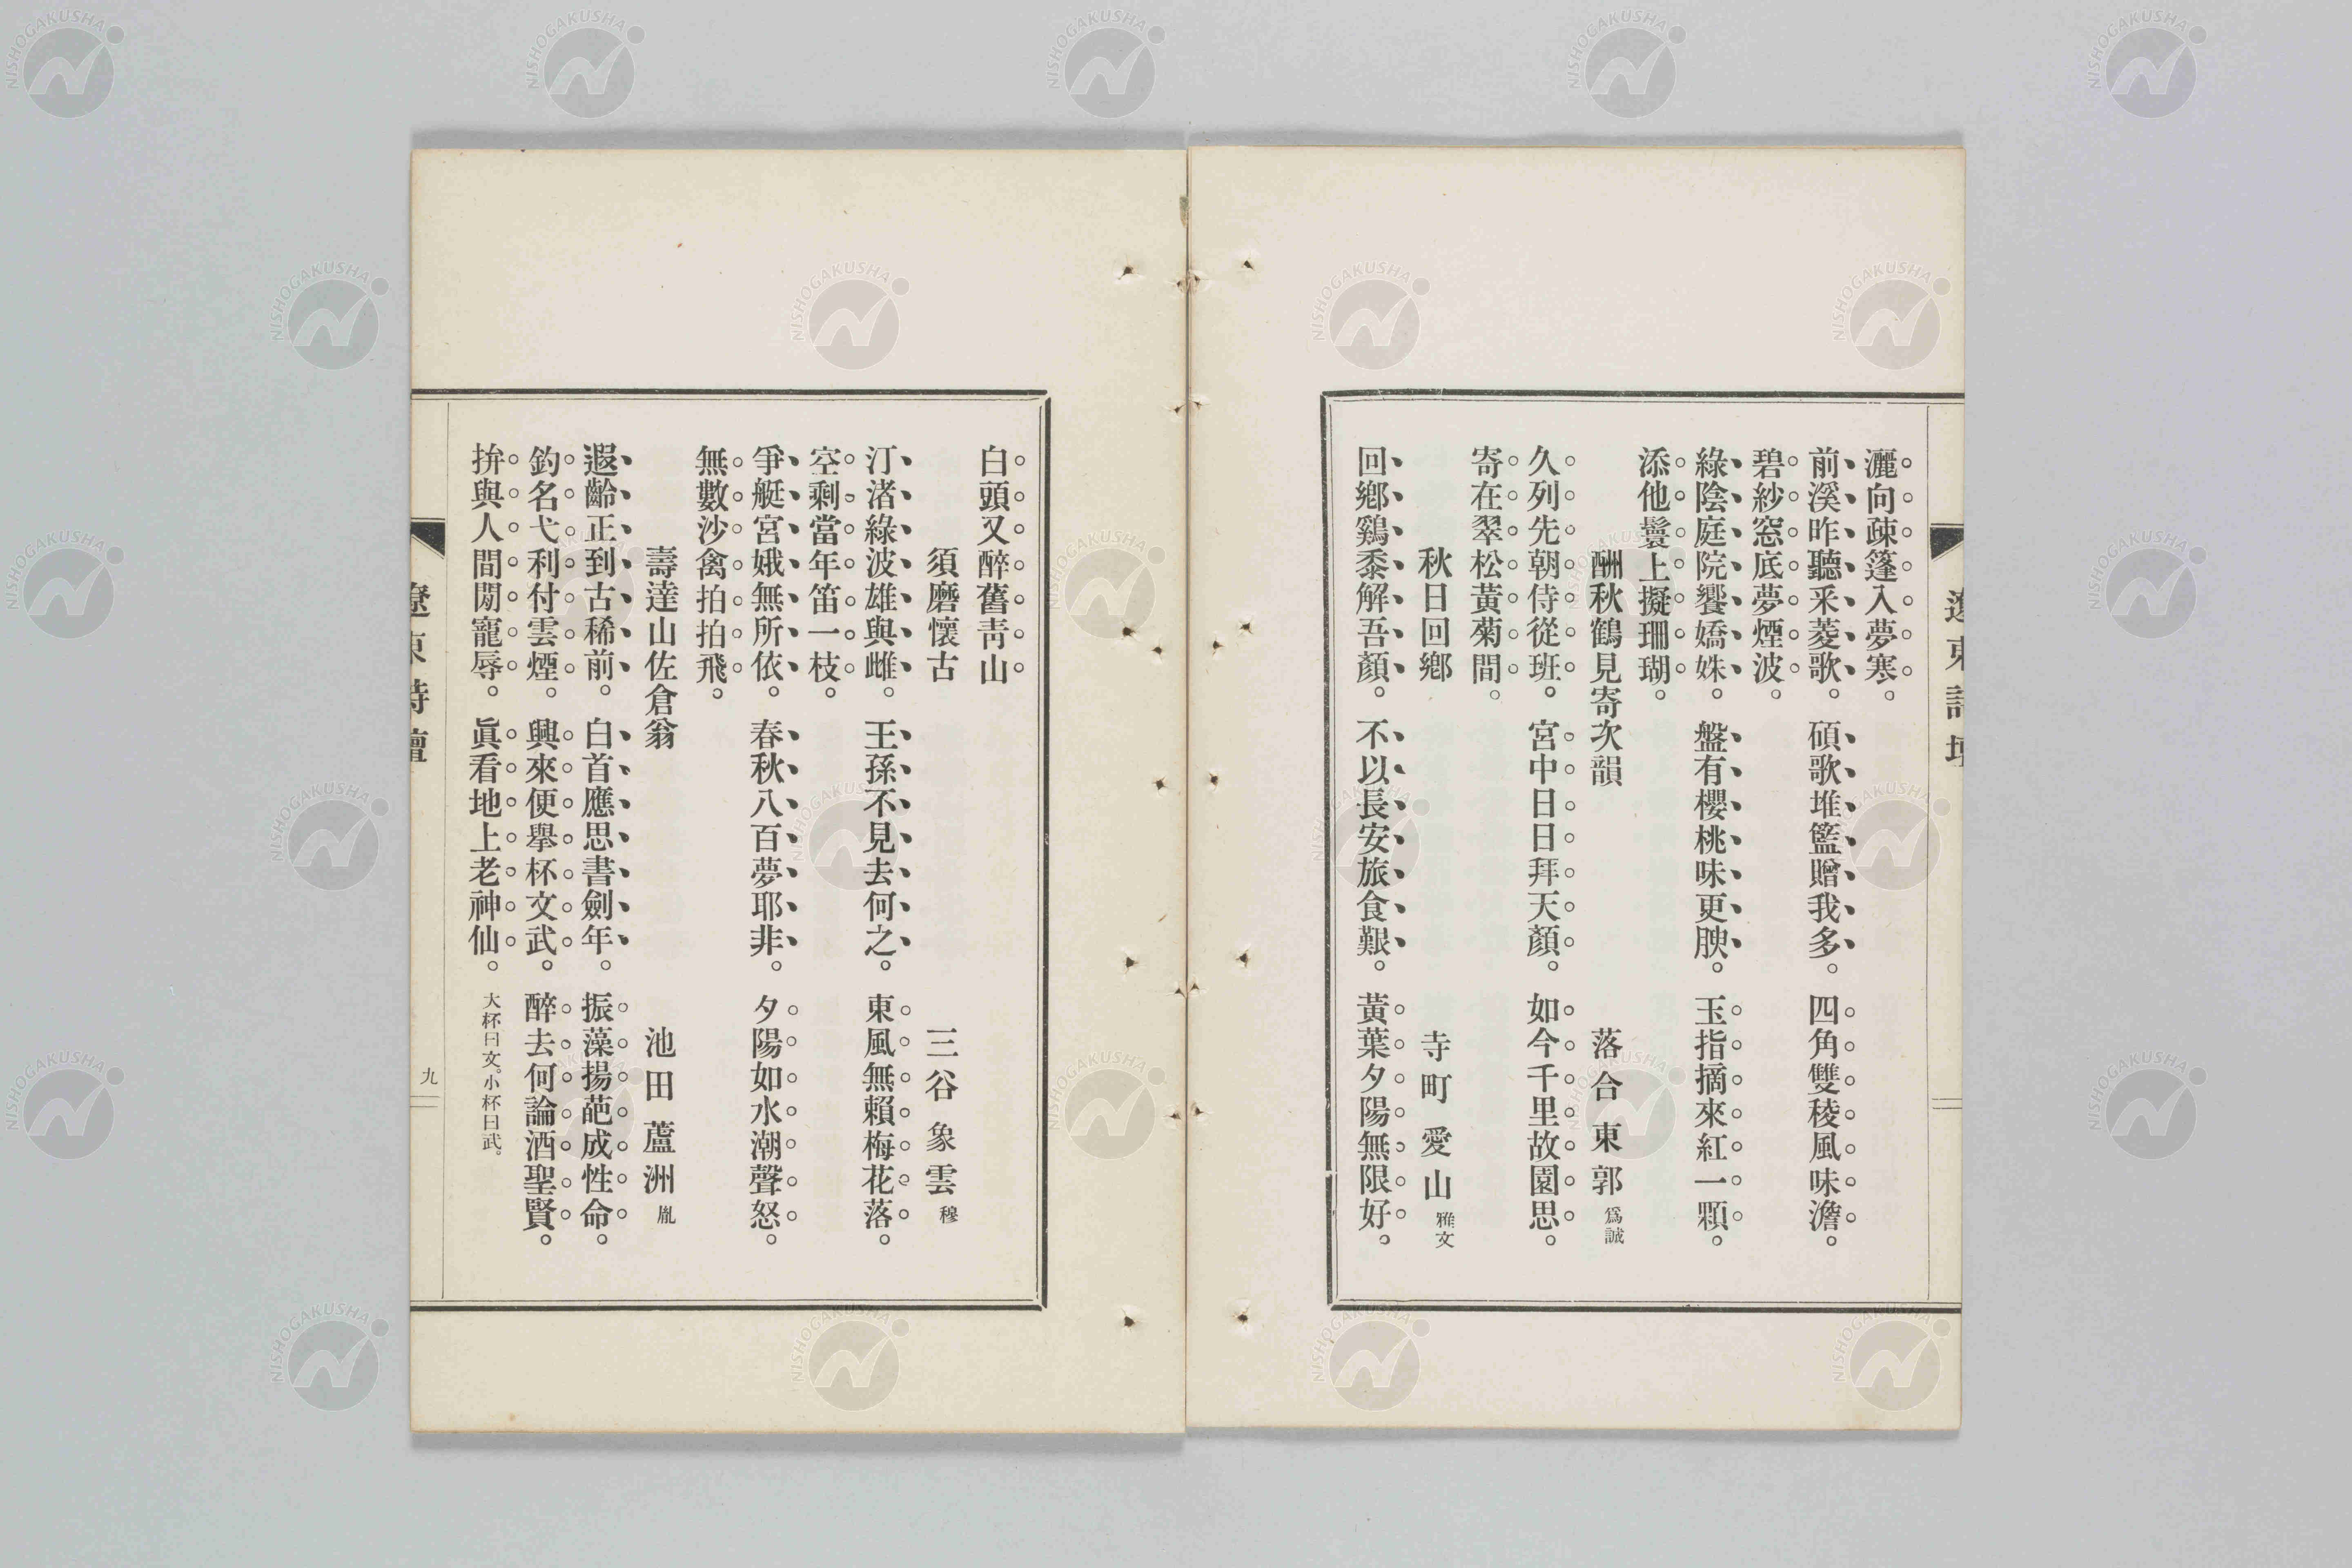 遼東詩壇
灑向疎篷入夢寒。
前溪昨聽釆菱歌。碩歌堆籃贈我多。四角雙稜風味澹。
碧紗窓底夢煙波。
綠陰庭院饗嬌姝。盤有櫻桃味更腴。玉指摘來紅一顆。
添他鬟上擬珊瑚。
酬秋鶴見寄次韻 落合東郭 爲誠
久列先朝侍從班。宮中日日拜天顏。如今千里故園思。
寄在翠松黃菊間。
秋日回鄉 寺町愛山 雅文
回鄉鷄黍解吾顏。不以長安旅食艱。黃葉夕陽無限好。
白頭又醉舊靑山
須磨懷古 三谷象雲 穆
汀渚綠波雄與雌。王孫不見去何之。東風無賴梅花落。
空剩當年笛一枝。
爭艇宮娥無所依。春秋八百夢耶非。夕陽如水潮聲怒。
無數沙禽拍拍飛。
壽達山佐倉翁 池田蘆洲 胤
遐齡正到古稀前。白首應思書劍年。振藻揚葩成性命。
釣名弋利付雲煙。興來便擧杯文武。醉去何論酒聖賢。
拚與人間閒寵辱。眞看地上老神仙。大杯曰文。小杯曰武。
遼東詩壇
九
NISHOGAKUSHA